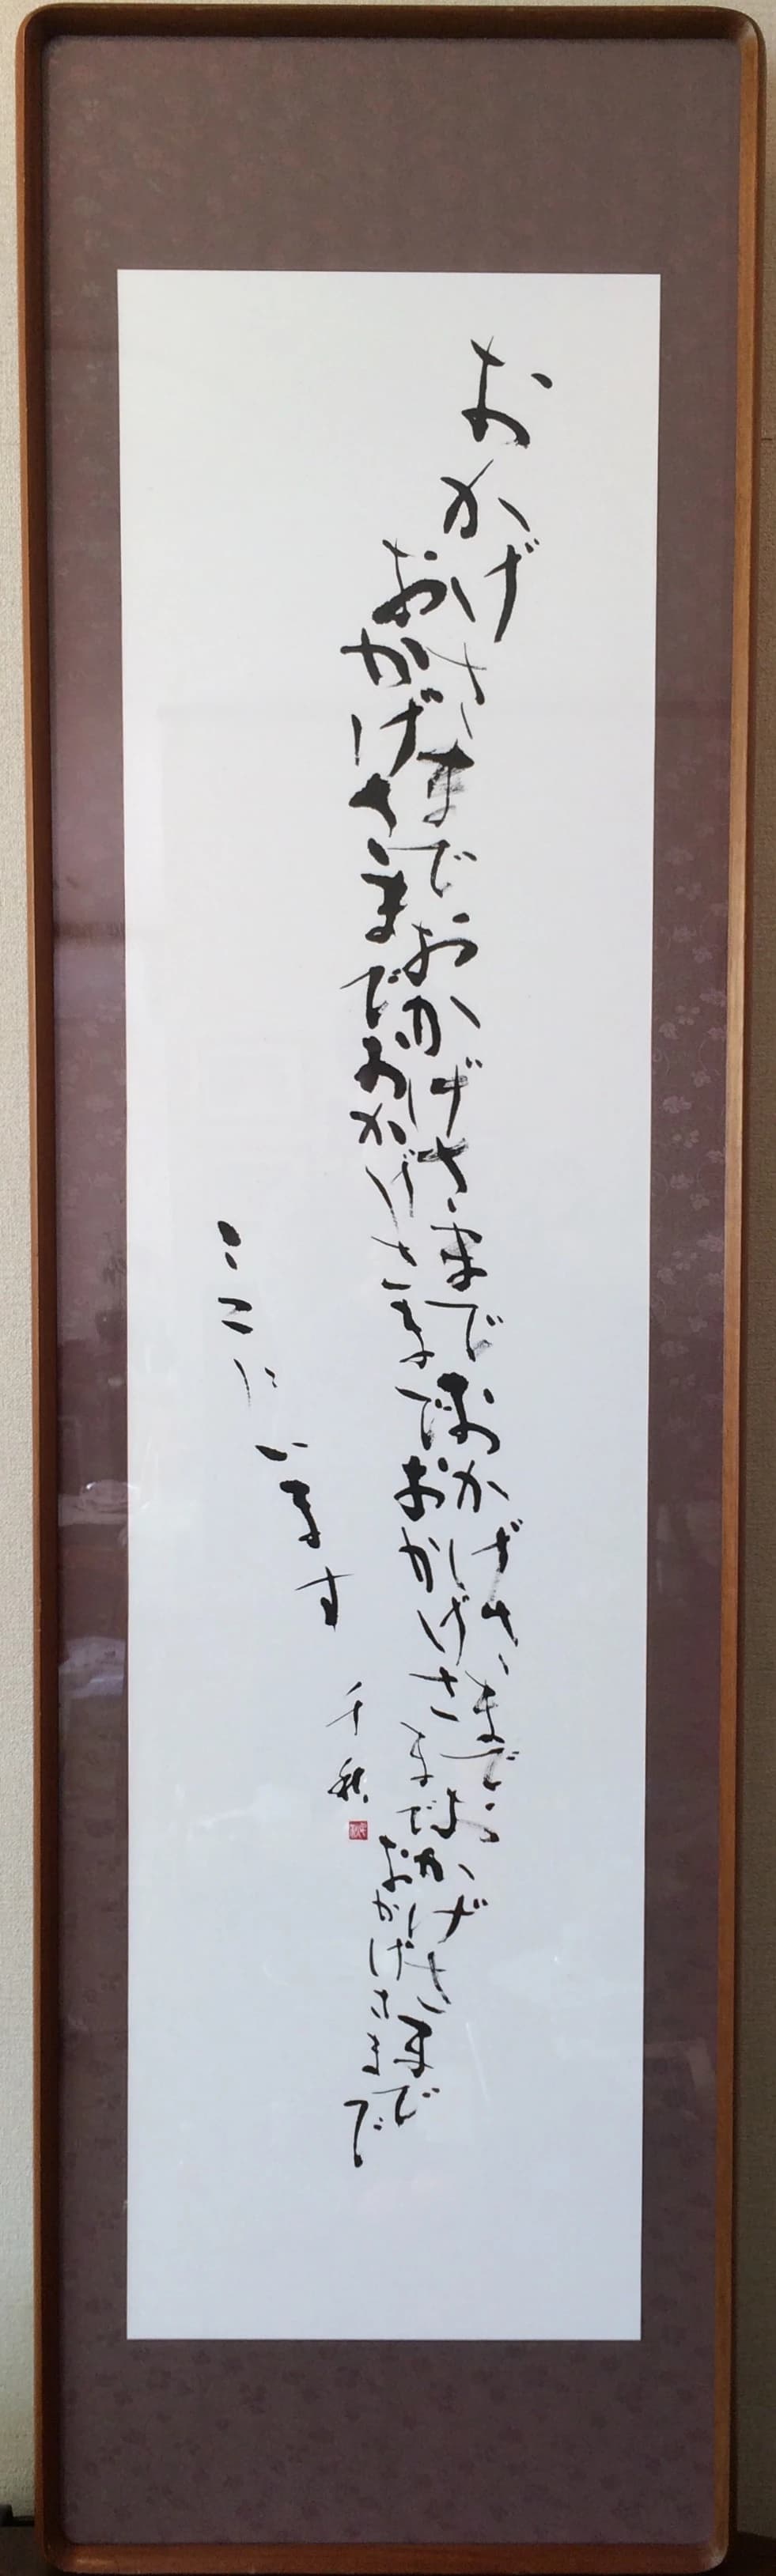 おかげさまでおかげさまでおかげさまでおかげさまで
おかげさまでおかげさまでおかげさまでおかげさまで
ここにいます
千秋